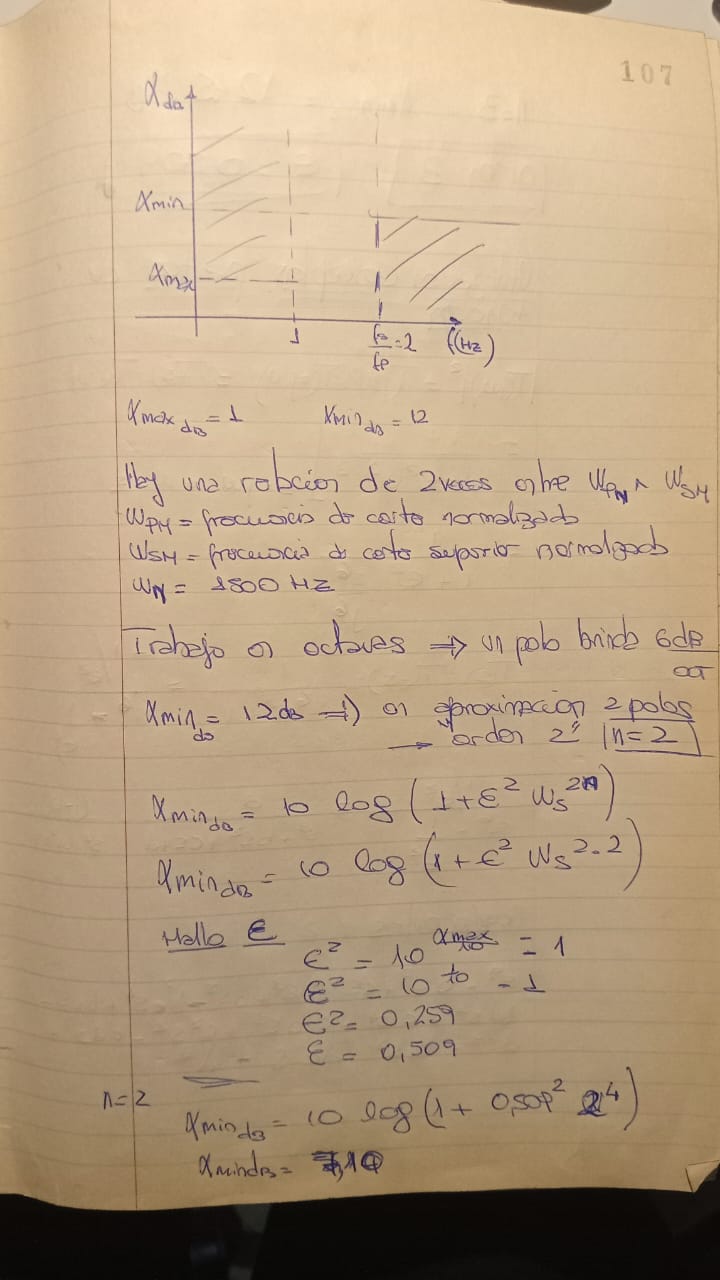 107
α dB
αmin
αmax
1
fs/fp = 2
f(Hz)
αmax dB = 1 αmin dB = 12
Hay una relación de 2 veces entre WPN ^ WSN
WPN = frecuencia de corte normalizada
WSN = frecuencia de corte superior normalizada
WN = 1500 Hz
Trabajo en octavas ⇒ un polo brinda 6dB/oct
αmin dB = 12dB ⇒ en aproximación 2 polos
→ "orden 2" n=2
αmin dB = 10 log (1 + ε² Ws^2n)
αmin dB = 10 log (1 + ε² Ws^2·2)
Hallo ε
ε² = 10^αmax/10 - 1
ε² = 10^1/10 - 1
ε² = 0,259
ε = 0,509
n=2
αmin dB = 10 log (1 + 0,509² 2^4)
αmin dB =